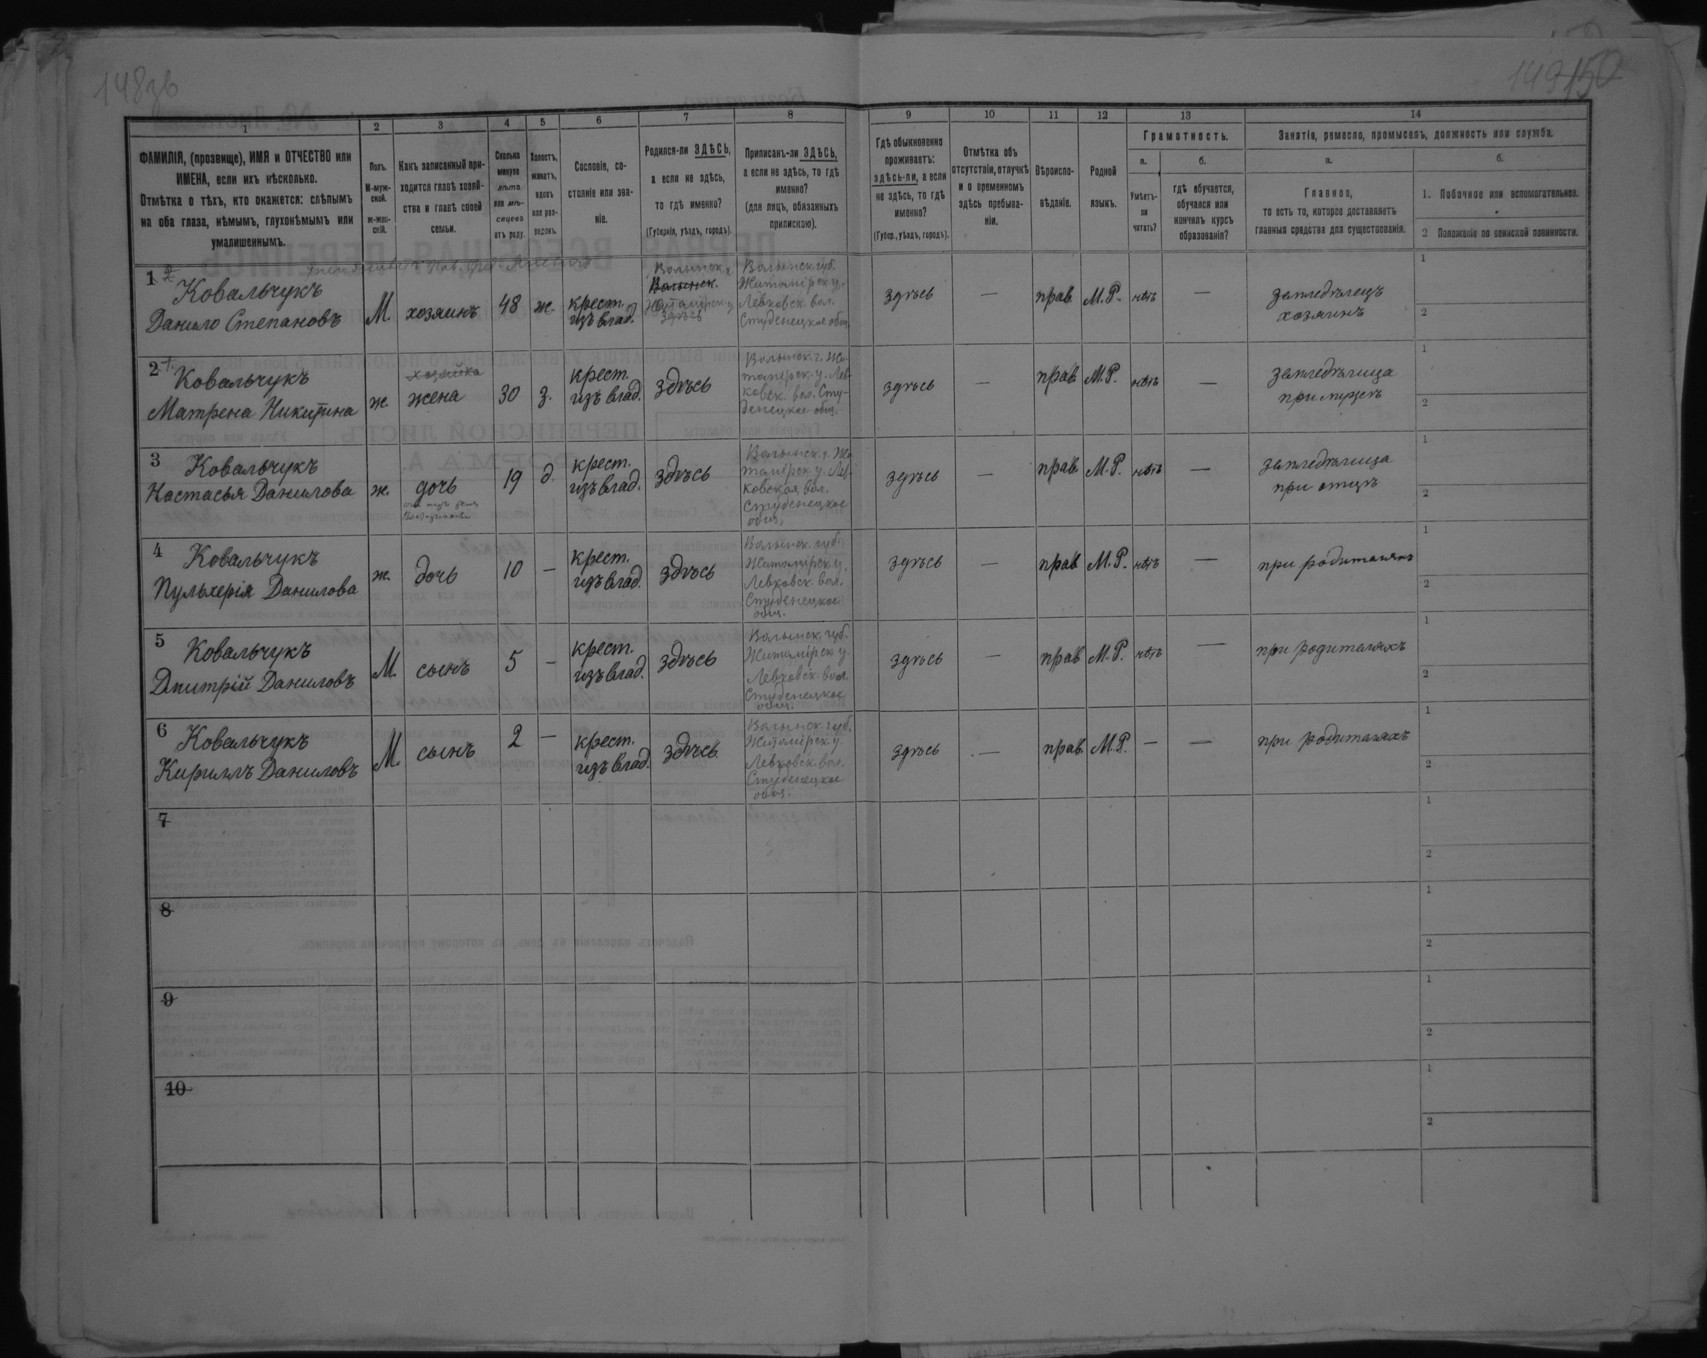 148зв
149 150
1 2 3 4 5 6 7 8 9 10 11 12 13 14
ФАМИЛІЯ, (прозвище), ИМЯ и ОТЧЕСТВО или
ИМЕНА, если ихъ нѣсколько.
Отмѣтка о тѣхъ, кто окажется: слѣпымъ
на оба глаза, нѣмымъ, глухонѣмымъ или
умалишеннымъ.
Полъ.
М-муж-
ской.
ж-жен-
скій.
Какъ записанный при-
ходится главѣ хозяй-
ства и главѣ своей
семьи.
Сколько
минуло
лѣтъ
или мѣ-
сяцевъ
отъ роду.
Холостъ,
женатъ,
вдовъ
или раз-
веденъ.
Сословіе, со-
стояніе или зва-
ніе.
Родился-ли ЗДѢСЬ,
а если не здѣсь,
то гдѣ именно?
(Губернія, уѣздъ, городъ).
Приписанъ-ли ЗДѢСЬ,
а если не здѣсь, то гдѣ
именно?
(для лицъ, обязанныхъ
припискою).
Гдѣ обыкновенно
проживаетъ:
здѣсь-ли, а если
не здѣсь, то гдѣ
именно?
(Губер., уѣздъ, городъ).
Отмѣтка объ
отсутствіи, отлучкѣ
и о временномъ
здѣсь пребыва-
ніи.
Вѣроиспо-
вѣданіе.
Родной
языкъ.
Грамотность.
а.
Умѣетъ-
ли
читать?
б.
гдѣ обучается,
обучался или
кончилъ курсъ
образованія?
Занятія, ремесло, промыселъ, должность или служба.
а.
Главное,
то есть то, которое доставляетъ
главныя средства для существованія.
б.
1. Побочное или вспомогательное.
2 Положеніе по воинской повинности.
1 Ковальчукъ
Данило Степановъ
М.
хозяинъ
48
ж.
крест.
изъ влад.
здѣсь
Волынск. губ.
Житомірск. у.
Левковск. вол.
Студенецкое общ.
здѣсь
—
прав.
М.Р.
нѣтъ
—
земледѣлецъ
хозяинъ
1
2
2 Ковальчукъ
Матрена Никитина
ж.
хозяйка
жена
30
з.
крест.
изъ влад.
здѣсь
Волынск. г. Жи-
томірск. у. Лев-
ковск. вол. Сту-
денецкое общ.
здѣсь
—
прав.
М.Р.
нѣтъ
—
земледѣлица
при мужѣ
1
2
3 Ковальчукъ
Настасья Данилова
ж.
дочь
19
д.
крест.
изъ влад.
здѣсь
Волынск. г. Жи
томірск. у. Лев
ковская вол.
Студенецкое
общ.
здѣсь
—
прав.
М.Р.
нѣтъ
—
земледѣлица
при отцѣ
1
2
4 Ковальчукъ
Пульхерія Данилова
ж.
дочь
10
—
крест.
изъ влад.
здѣсь
Волынск. губ.
Житомірск. у.
Левковск. вол.
Студенецкое
общ.
здѣсь
—
прав.
М.Р.
нѣтъ
—
при родителяхъ
1
2
5 Ковальчукъ
Дмитрій Даниловъ
М.
сынъ
5
—
крест.
изъ влад.
здѣсь
Волынск. губ.
Житомірск. у.
Левковск. вол.
Студенецкое
общ.
здѣсь
—
прав.
М.Р.
нѣтъ
—
при родителяхъ
1
2
6 Ковальчукъ
Кириллъ Даниловъ
М.
сынъ
2
—
крест.
изъ влад.
здѣсь
Волынск. губ.
Житомірск. у.
Левковск. вол.
Студенецкое
общ.
здѣсь
—
прав.
М.Р.
—
—
при родителяхъ
1
2
7
1
2
8
1
2
9
1
2
10
1
2